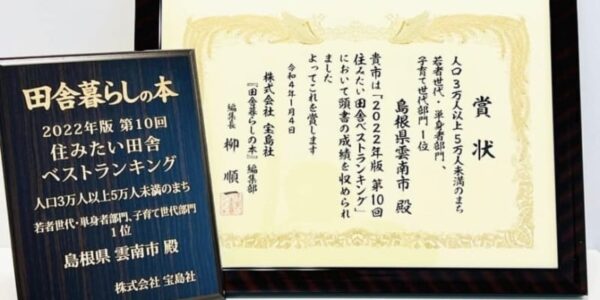 田舎暮らしの本
2022年版 第10回
住みたい田舎
ベストランキング
人口3万人以上5万人未満のまち
若者世代・単身者部門、子育て世代部門
1位
島根県 雲南市 殿
株式会社 宝島社
賞状
人口3万人以上5万人未満のまち
若者世代・単身者部門、
子育て世代部門1位
島根県雲南市 殿
貴市は「2022年版 第10回
住みたい田舎ベストランキング」
において頭書の成績を収められ
ました
よってこれを賞します
令和4年1月4日
株式会社 宝島社
『田舎暮らしの本』編集部
編集長 柳 順一